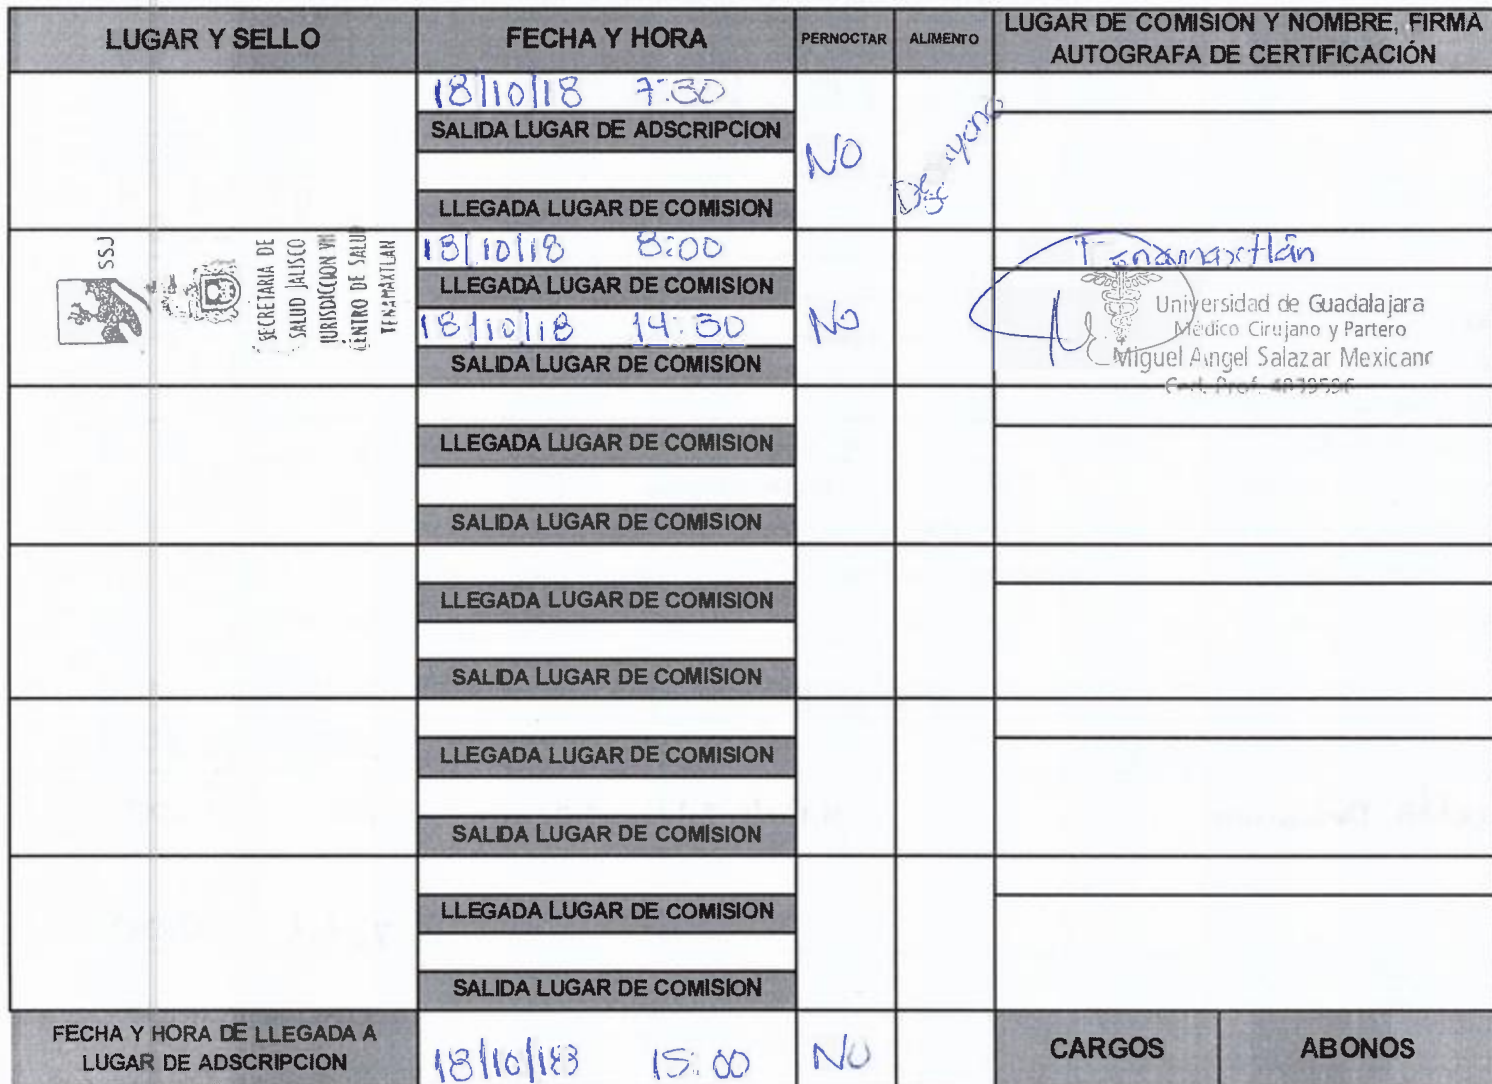 LUGAR Y SELLO
FECHA Y HORA
PERNOCTAR
ALIMENTO
LUGAR DE COMISION Y NOMBRE, FIRMA
AUTOGRAFA DE CERTIFICACIÓN
18/10/18 7:30
SALIDA LUGAR DE ADSCRIPCION
NO
LLEGADA LUGAR DE COMISION
SSJ
SECRETARIA DE
SALUD JALISCO
JURISDICCION VII
CENTRO DE SALUD
TENAMAXTLAN
18/10/18 8:00
LLEGADA LUGAR DE COMISION
18/10/18 14:30
SALIDA LUGAR DE COMISION
NO
Tenamaxtlán
Universidad de Guadalajara
Médico Cirujano y Partero
Miguel Angel Salazar Mexicano
Ced. Prof.
LLEGADA LUGAR DE COMISION
SALIDA LUGAR DE COMISION
LLEGADA LUGAR DE COMISION
SALIDA LUGAR DE COMISION
LLEGADA LUGAR DE COMISION
SALIDA LUGAR DE COMISION
LLEGADA LUGAR DE COMISION
SALIDA LUGAR DE COMISION
FECHA Y HORA DE LLEGADA A
LUGAR DE ADSCRIPCION
18/10/18 15:00
NO
CARGOS
ABONOS